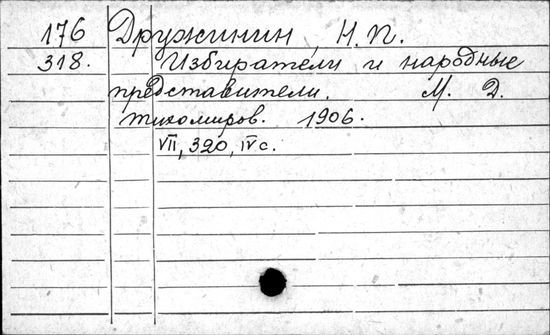 176 Дружинин, Н. П.
318. Избиратели и народные
представители. М. Д.
Тихомиров. 1906.
VII, 390, IV с.